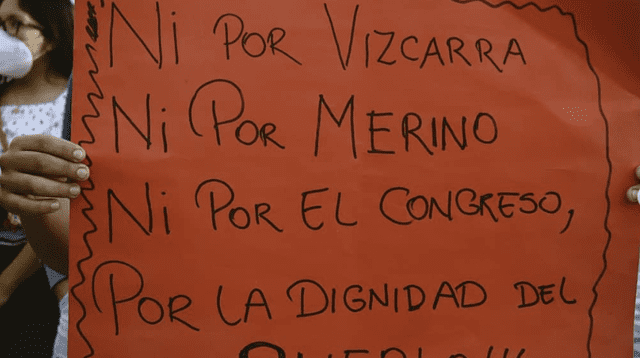 Ni POR VIZCARRA
Ni POR MERINO
Ni POR EL CONGRESO,
POR LA DIGNIDAD DEL